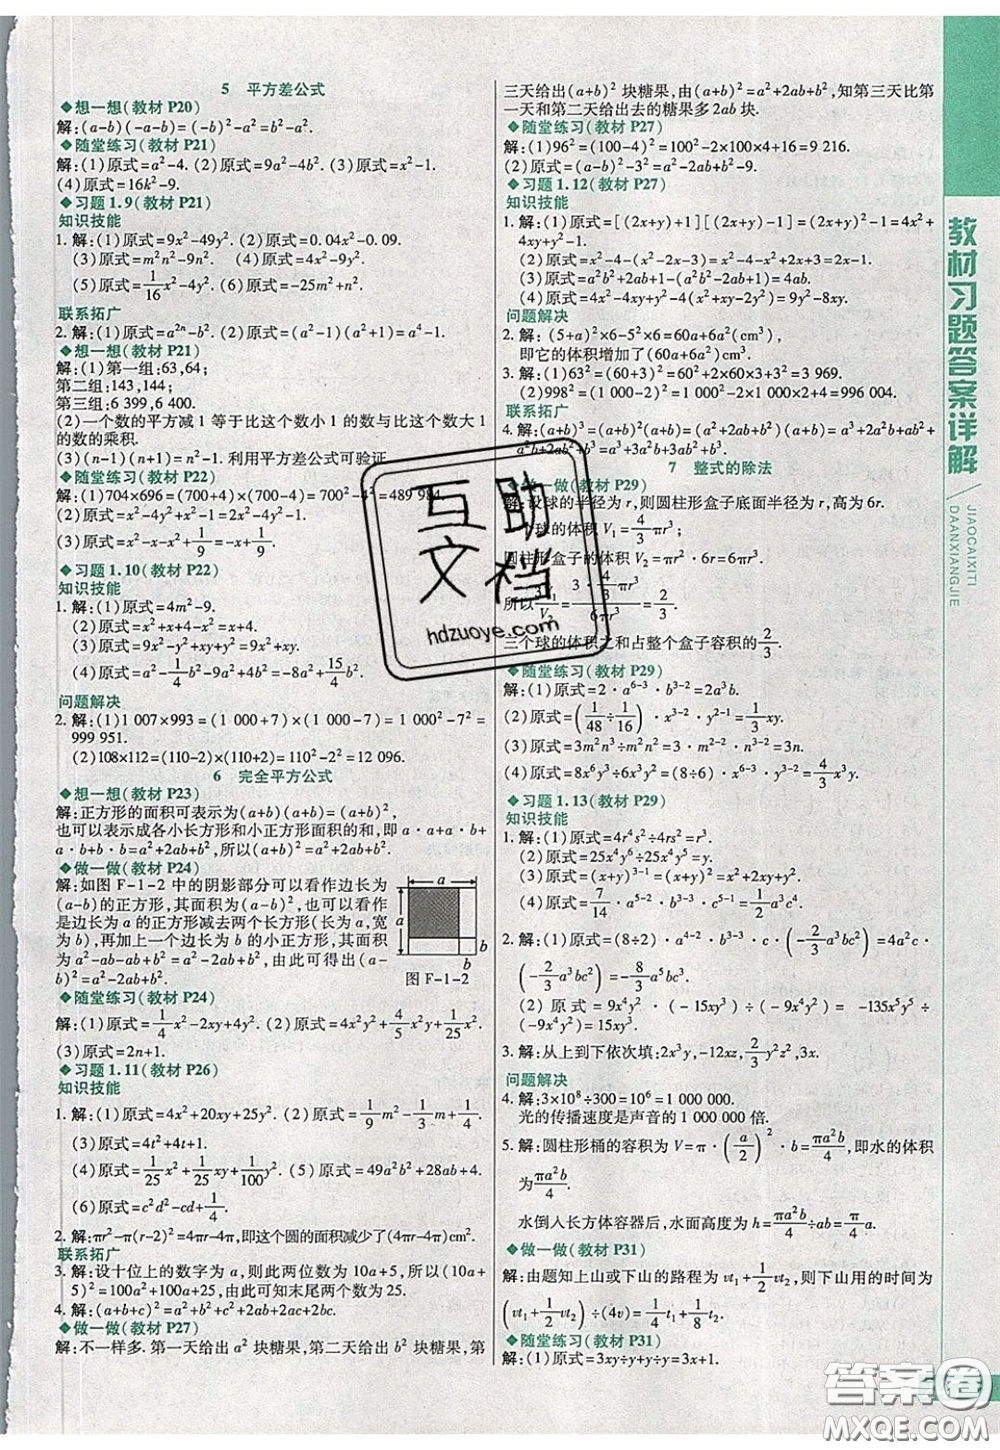 5 平方差公式
❖想一想(教材 P20)
解:(a-b)(-a-b)=(-b)²-a²=b²-a².
❖随堂练习(教材 P21)
解:(1)原式=a²-4. (2)原式=9a²-4b². (3)原式=x²-1.
(4)原式=16k²-9.
❖习题 1.9(教材 P21)
知识技能
1. 解:(1)原式=9x²-49y². (2)原式=0.04x²-0.09.
(3)原式=m²n²-9n². (4)原式=4n²-25.
(5)原式=1/16x²-4y². (6)原式=-25m²+n².
联系拓广
2. 解:(1)原式=a²ⁿ-b². (2)原式=(a²-1)(a²+1)=a⁴-1.
❖想一想(教材 P21)
解:(1)第一组:63,64;
第二组:143,144;
第三组:6 399,6 400.
(2)一个数的平方减 1 等于比这个数小 1 的数与比这个数大 1
的数的乘积.
(3)(n-1)(n+1)=n²-1. 利用平方差公式可验证.
❖随堂练习(教材 P22)
解:(1)704×696=(700+4)(700-4)=700²-4²=489 984.
(2)原式=x²-4y²+x²-1=2x²-4y²-1.
(3)原式=x²-x-x²+1/9=-x+1/9.
❖习题 1.10(教材 P22)
知识技能
1. 解:(1)原式=4m²-9.
(2)原式=x²+x+4-x²=x+4.
(3)原式=9x²-y²+xy+y²=9x²+xy.
(4)原式=a²-1/4b²-9a²+4b²=-8a²+15/4b².
问题解决
2. 解:(1)1 007×993=(1 000+7)×(1 000-7)=1 000²-7²=
999 951.
(2)108×112=(110-2)×(110+2)=110²-2²=12 096.
6 完全平方公式
❖想一想(教材 P23)
解:正方形的面积可表示为(a+b)(a+b)=(a+b)²,
也可以表示成各小长方形和小正方形面积的和,即 a·a+a·b+
a·b+b·b=a²+2ab+b²,所以(a+b)²=a²+2ab+b².
❖做一做(教材 P24)
解:如图 F-1-2 中的阴影部分可以看作边长为
(a-b)的正方形,其面积为(a-b)²,也可以看作
是边长为 a 的正方形减去两个长方形(长为 a,宽
为 b),再加上一个边长为 b 的小正方形,其面积
为 a²-ab-ab+b²=a²-2ab+b²,由此可得出(a-
b)²=a²-2ab+b².
a
a
b
b
图 F-1-2
❖随堂练习(教材 P24)
解:(1)原式=1/4x²-2xy+4y². (2)原式=4x²y²+4/5x²y+1/25x².
(3)原式=2n+1.
❖习题 1.11(教材 P26)
知识技能
1. 解:(1)原式=4x²+20xy+25y². (2)原式=1/9m²-1/3m+1/4.
(3)原式=4t²+4t+1.
(4)原式=1/25x²+1/25xy+1/100y². (5)原式=49a²b²+28ab+4.
(6)原式=c²d²-cd+1/4.
2. 解:πr²-π(r-2)²=4πr-4π,即这个圆的面积减少了(4πr-4π)cm².
联系拓广
3. 解:设十位上的数字为 a,则此两位数为 10a+5,所以(10a+
5)²=100a²+100a+25,由此可知末尾两个数为 25.
4. 解:(a+b+c)²=a²+b²+c²+2ab+2ac+2bc.
❖做一做(教材 P27)
解:不一样多. 第一天给出 a² 块糖果,第二天给出 b² 块糖果,第
三天给出(a+b)² 块糖果,由(a+b)²=a²+2ab+b²,知第三天比第
一天和第二天给出去的糖果多 2ab 块.
❖随堂练习(教材 P27)
解:(1)96²=(100-4)²=100²-2×100×4+4²=9 216.
(2)原式=(a-b)²-3²=a²-2ab+b²-9.
❖习题 1.12(教材 P27)
知识技能
1. 解:(1)原式=[(2x+y)+1][(2x+y)-1]=(2x+y)²-1=4x²+
4xy+y²-1.
(2)原式=x²-4x+4-(x²-2x-3)=x²-4x+4-x²+2x+3=-2x+7.
(3)原式=a²b²+2ab+1-(a²b²-2ab+1)=4ab.
(4)原式=4x²-4xy+y²-4(x²+xy-2y²)=9y²-8xy.
问题解决
2. 解:(5+a)²×6-5²×6=60a+6a²(cm³),
即它的体积增加了(60a+6a²)cm³.
3. 解:(1)63²=(60+3)²=60²+2×60×3+3²=3 969.
(2)998²=(1 000-2)²=1 000²-2×1 000×2+4=996 004.
联系拓广
4. 解:(a+b)³=(a+b)²(a+b)=(a²+2ab+b²)(a+b)=a³+
a²b+2a²b+2ab²+ab²+b³=a³+3a²b+3ab²+b³.
7 整式的除法
❖做一做(教材 P29)
解:设球的半径为 r,则圆柱形盒子底面半径为 r,高为 6r.
一个球的体积 V₁=4/3πr³;
圆柱形盒子的体积 V₂=πr²·6r=6πr³.
所以3V₁/V₂=(3·4/3πr³)/(6πr³)=2/3.
三个球的体积之和占整个盒子容积的2/3.
❖随堂练习(教材 P29)
解:(1)原式=2·a⁶⁻³·b³⁻²=2a³b.
(2)原式=(1/48÷1/16)·x³⁻²·y²⁻¹=1/3xy.
(3)原式=3m²n³÷m²n²=3·n³⁻²=3n.
(4)原式=8x⁶y³÷6x³y²=8/6·x⁶⁻³·y³⁻²=4/3x³y.
❖习题 1.13(教材 P29)
知识技能
1. 解:(1)原式=4r⁴s²÷4rs²=r³.
(2)原式=25x⁴y⁶÷5x⁴y⁴=5y².
(3)原式=(x+y)³⁻¹=(x+y)²=x²+2xy+y².
(4)原式=7/14·a⁵⁻³·b³⁻²·c⁵⁻¹=1/2a²bc⁴.
2. 解:(1)原式=(8÷2)·a⁴⁻²·b³⁻³·c·(-2/3a³bc²)=4a²c·
(-2/3a³bc²)=-8/3a⁵bc³.
(2)原式=9x⁴y²·(-15xy³)÷(-9x⁴y²)=-135x⁵y⁵÷
(-9x⁴y²)=15xy³.
3. 解:从上到下依次填:2x³y,-12xz,2/3y²z²,1/3xy.
问题解决
4. 解:3×10⁸÷300=10⁶=1 000 000.
光的传播速度是声音的 1 000 000 倍.
5. 解:圆柱形桶的容积为 V=π·(a/2)²·b=πa²b/4,即水的体积
为πa²b/4.
水倒人长方体容器后,水面高度为 h=πa²b/4÷ab=π/4a.
❖做一做(教材 P31)
解:由题知上山或下山的路程为 vt₁+1/2vt₂,则下山用的时间为
(vt₁+1/2vt₂)÷(4v)=1/4t₁+1/8t₂.
❖随堂练习(教材 P31)
解:(1)原式=3xy÷y+y÷y=3x+1.
教材习题答案详解
JIAOCAIXITI
DAANXIANGJIE
互助
文档
hdzuoye.com
答案圈
MXQE.COM